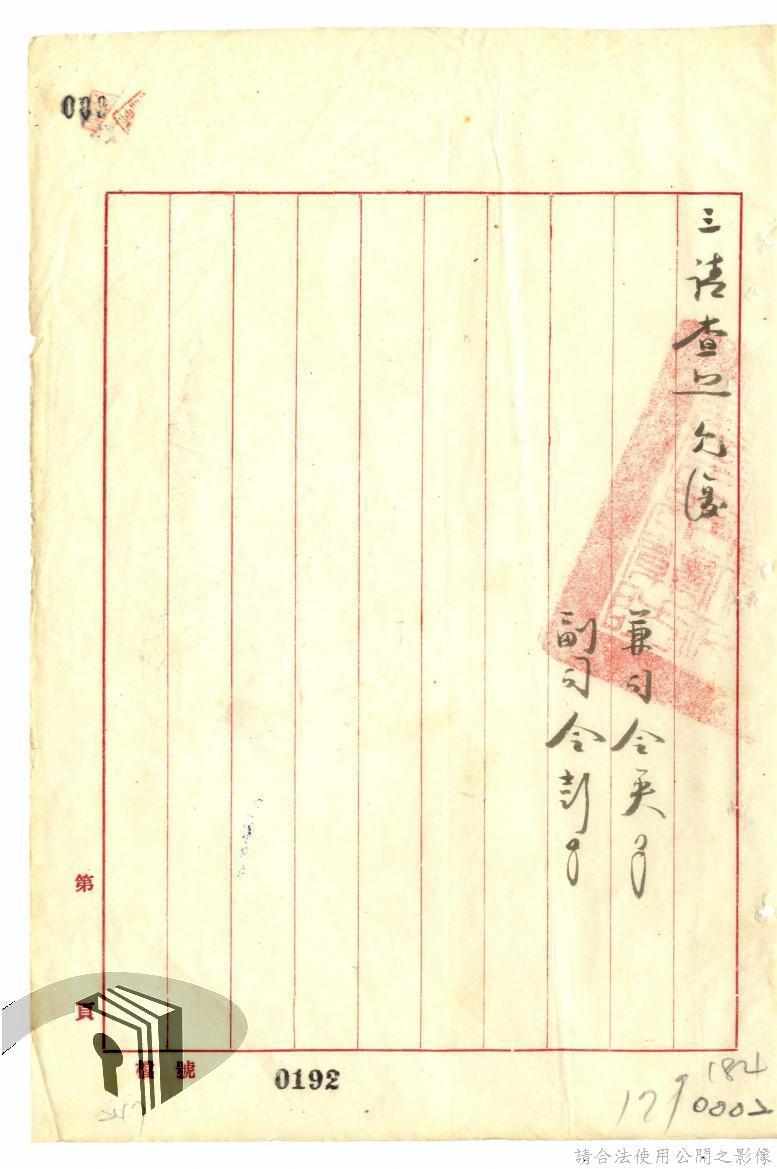 三請查照允復
兼司令吳
副司令彭
第
頁
檔號
0192
184
179
0002
請合法使用公開之影像